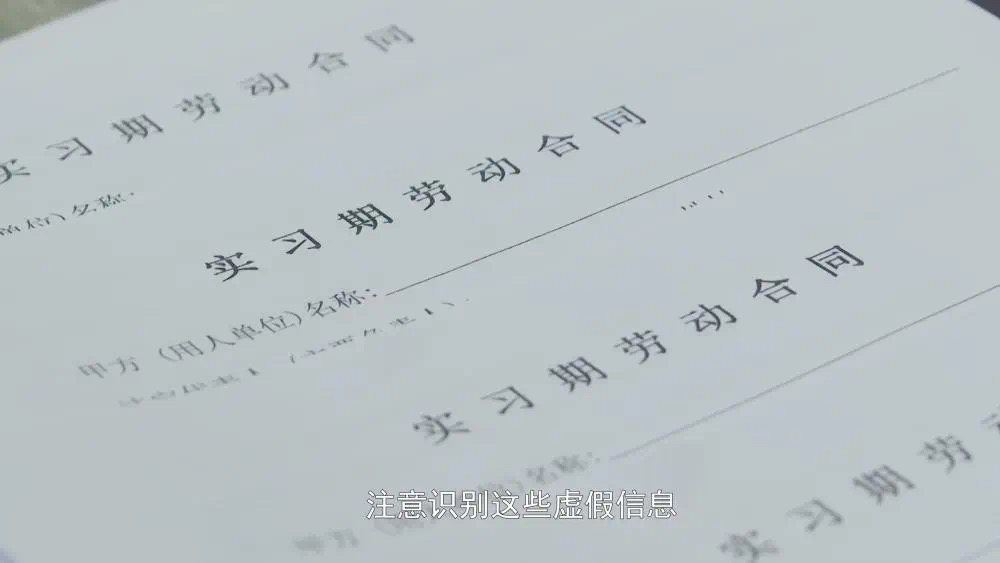 实习期劳动合同
单位)名称:
实习期劳动合同
甲方(用人单位)名称:
实习期劳动合同
甲方
位)名称:
实习期劳动
注意识别这些虚假信息